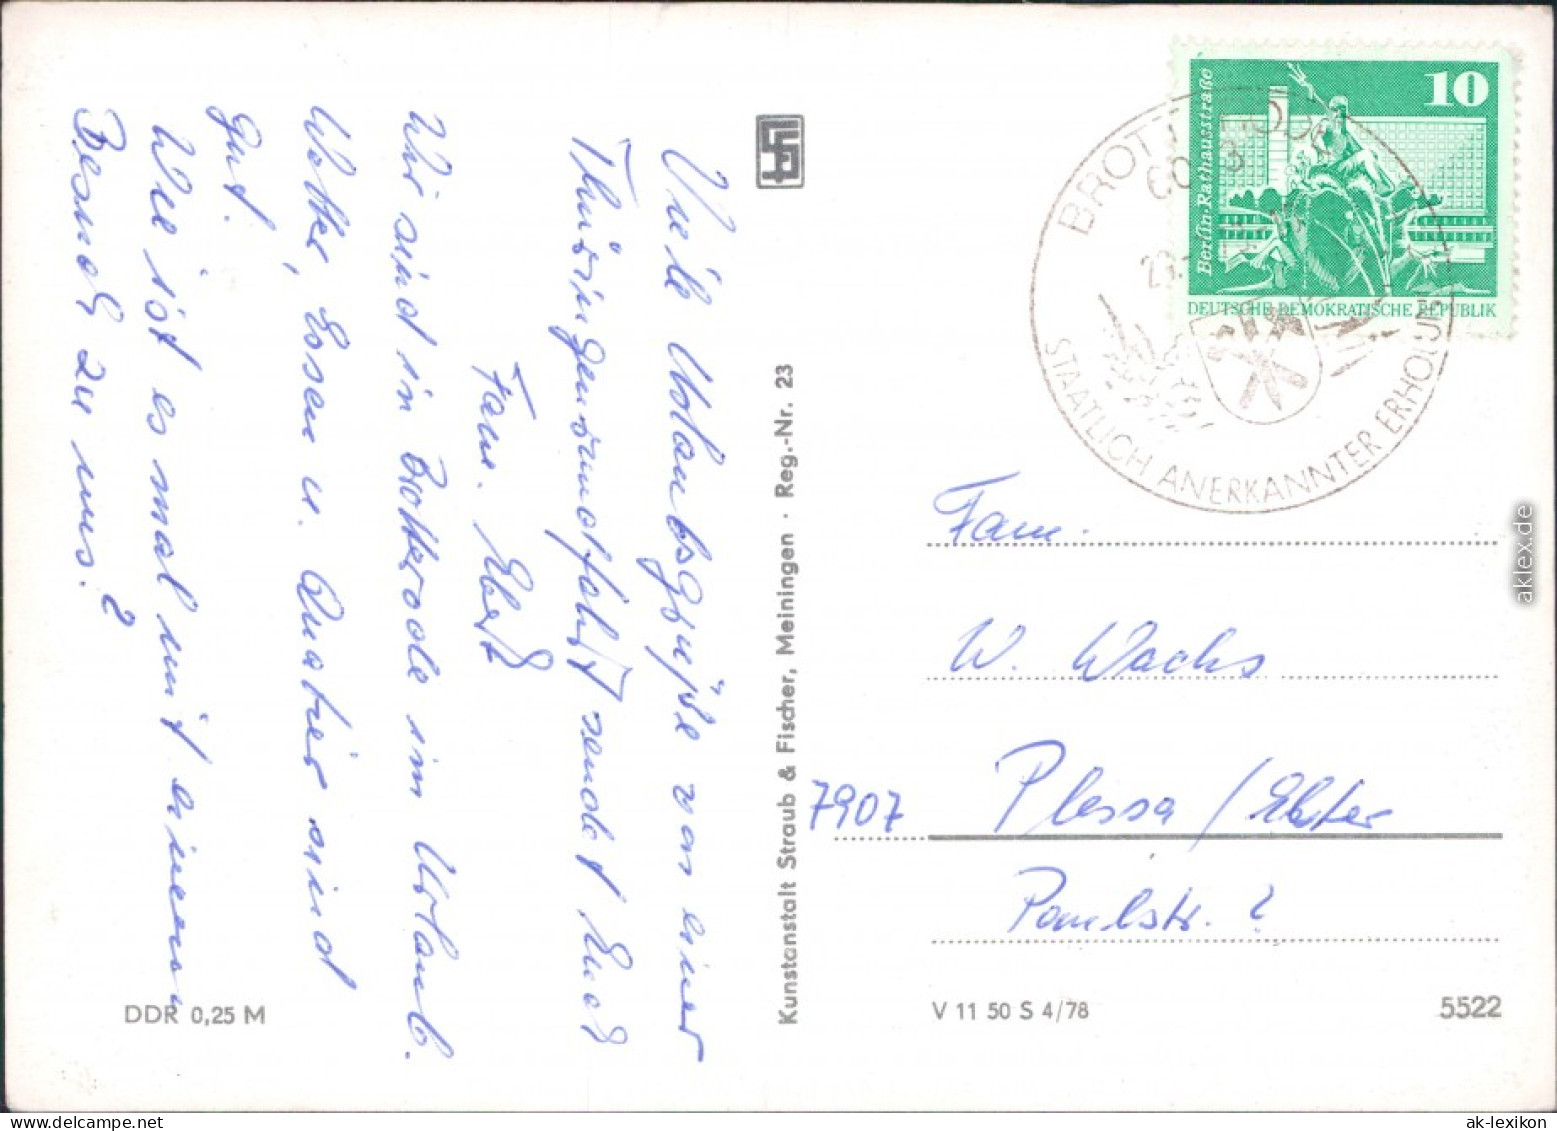 Viele Urlaubsgrüße von einer
Thüringenrundfahrt sendet Euch
Fam. Ebert
Wir sind in Brotterode im Urlaub.
Wetter, Essen u. Quatier sind
gut.
Wie ist es mal mit einem
Besuch zu uns?
DDR 0,25 M
Kunstanstalt Straub & Fischer, Meiningen · Reg.-Nr. 23
10
Berlin-Rathausstraße
DEUTSCHE DEMOKRATISCHE REPUBLIK
STAATLICH ANERKANNTER ERHOLUNGS
Fam.
W. Wachs
7907 Plessa / Elster
str. ?
V 11 50 S 4/78
5522
aklex.de
ak-lexikon